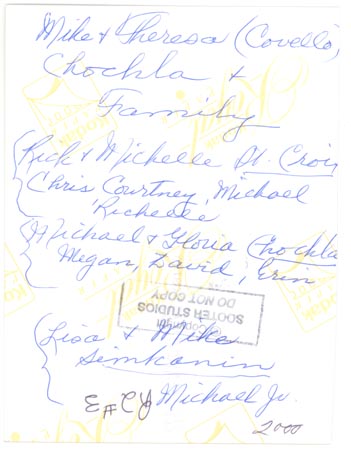 Mike & Theresa (Covello)
Chochla &
Family
Rick & Michelle St. Croix
Chris Courtney, Michael
Richelle
Michael & Gloria Chochla
Megan, David, Erin
Copyright
SOOTER STUDIOS
DO NOT COPY
Lisa & Mike
Simkanin
Michael Jr.
R2#3
2000